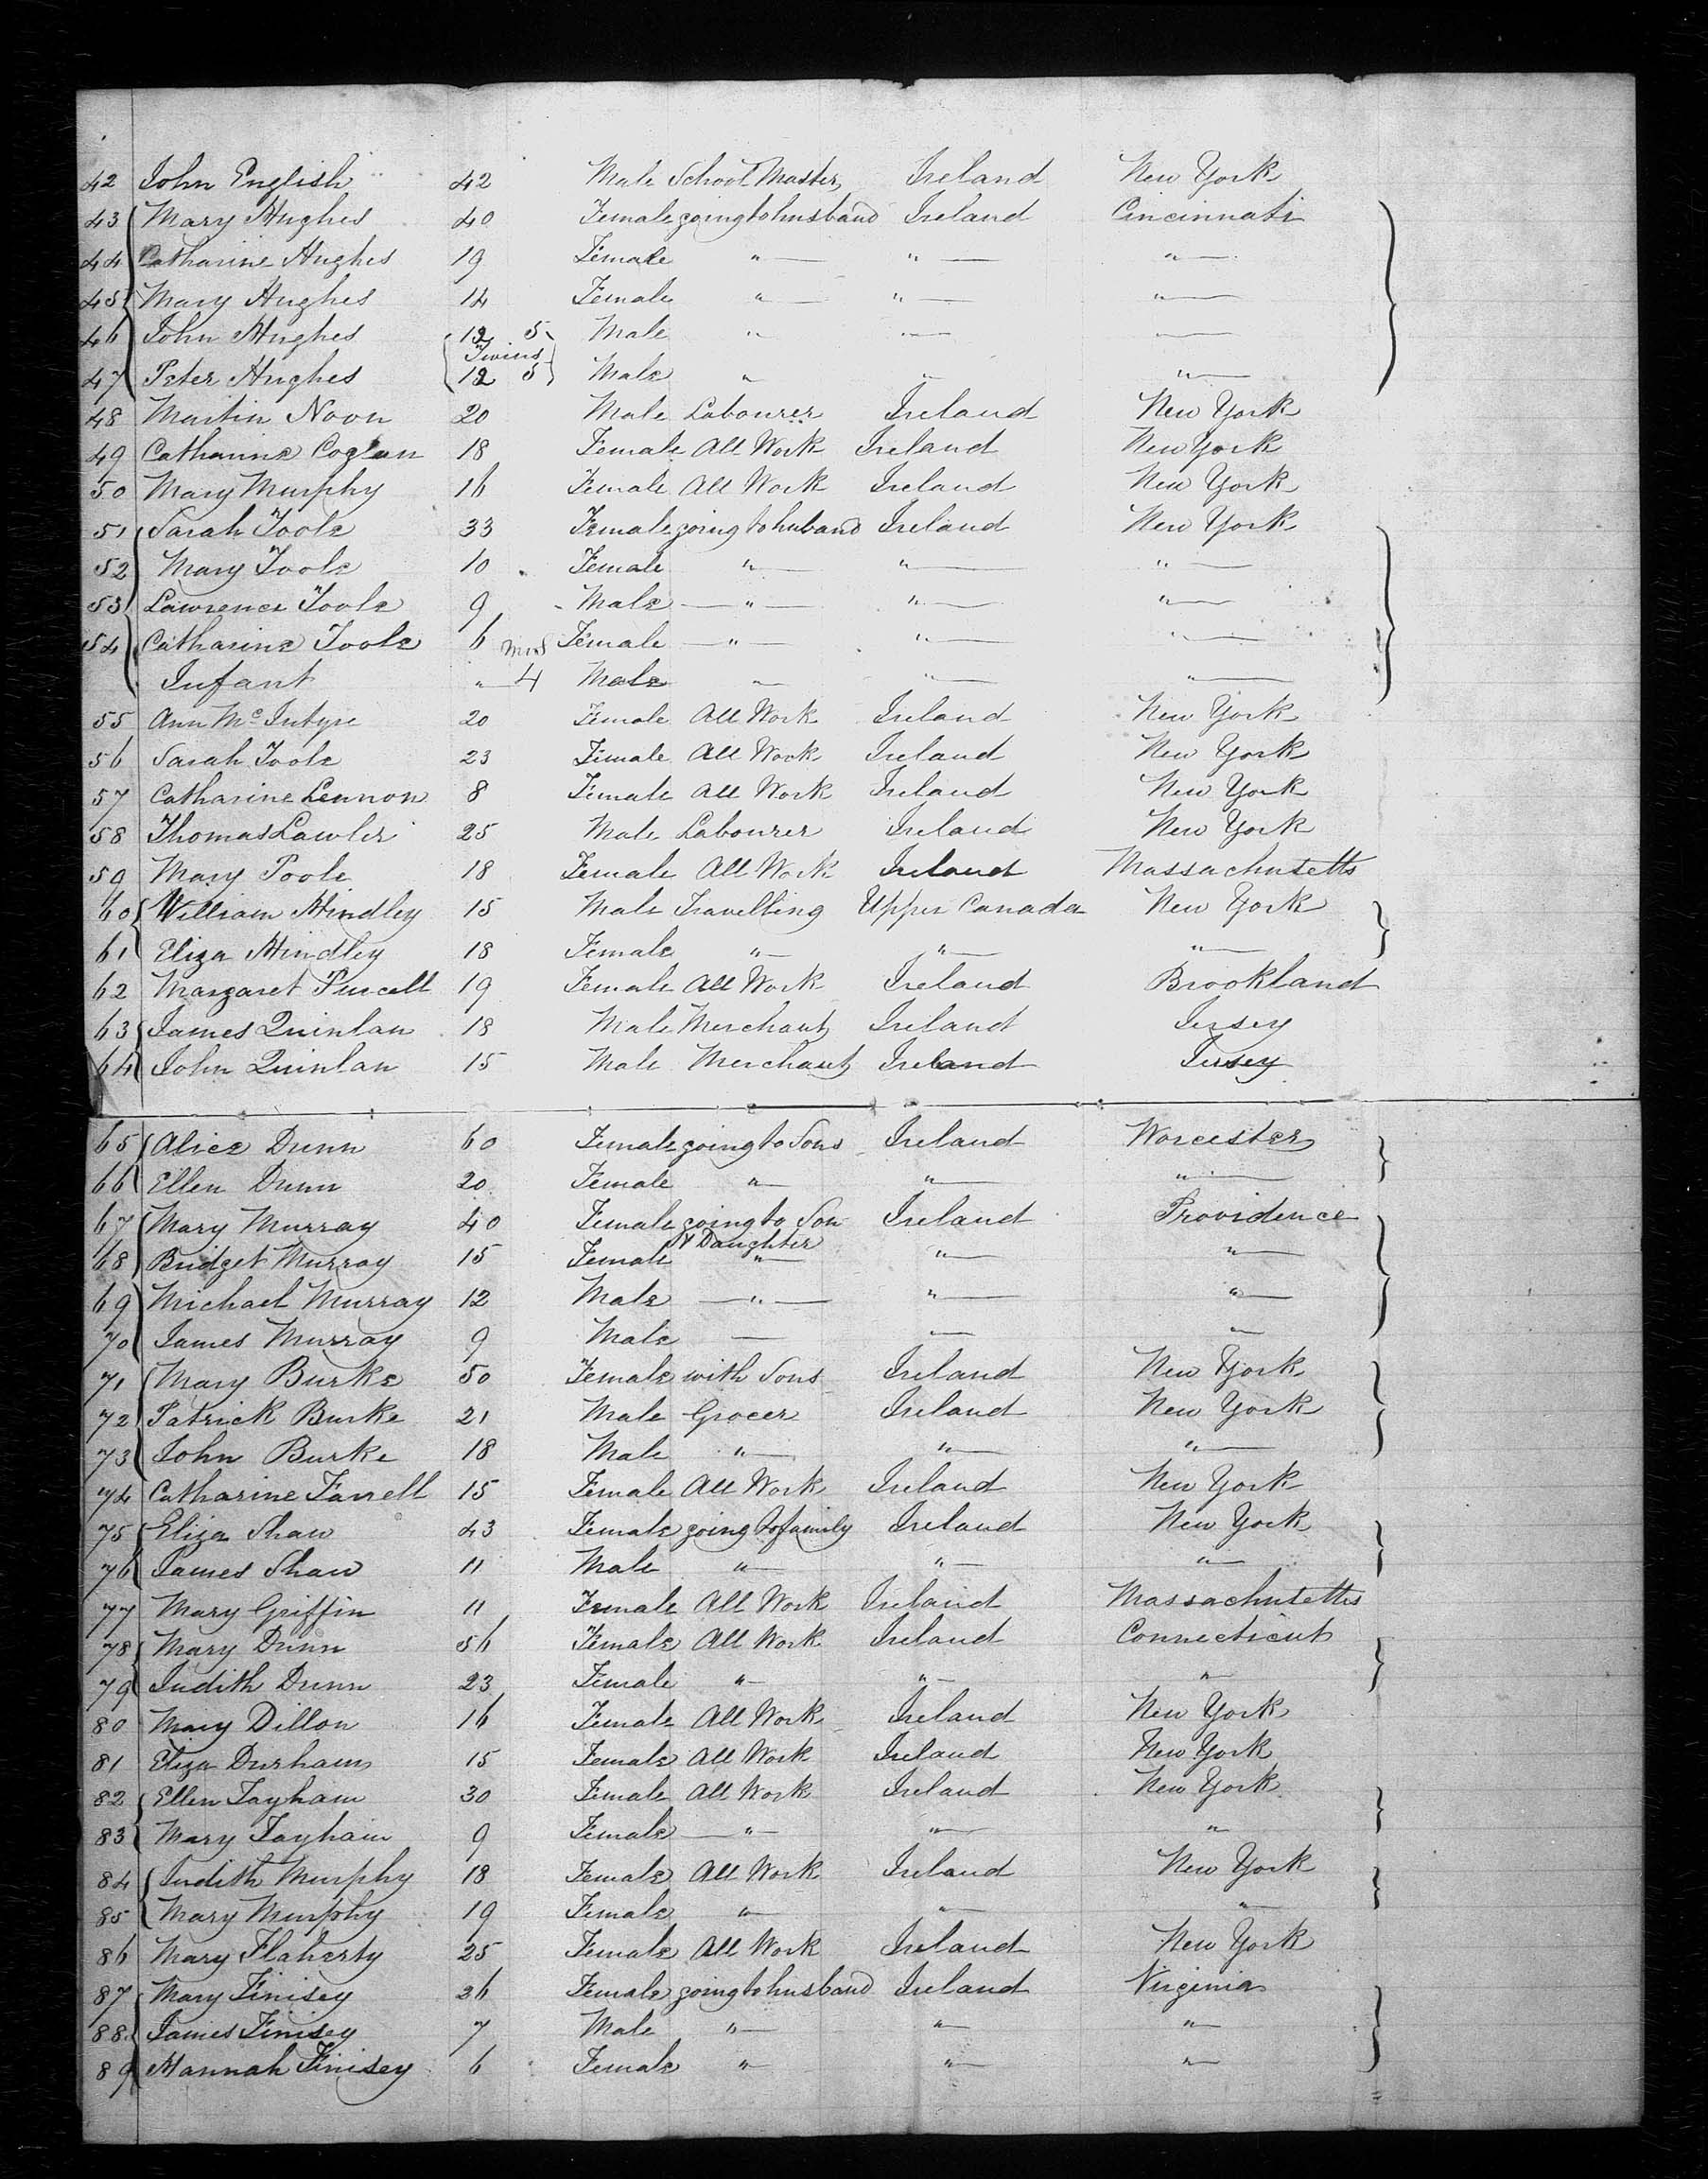 42 John English 42 Male School Master Ireland New York
43 Mary Hughes 40 Female going to husband Ireland Cincinnati
44 Catharine Hughes 19 Female " " "
45 Mary Hughes 14 Female " " "
46 John Hughes 12 5 Male " " "
Twins
47 Peter Hughes 12 5 Male " " "
48 Martin Noon 20 Male Labourer Ireland New York
49 Catharine Coglan 18 Female All Work Ireland New York
50 Mary Murphy 16 Female All Work Ireland New York
51 Sarah Toole 33 Female going to huband Ireland New York
52 Mary Toole 10 Female " " "
53 Lawrence Toole 9 Male " " "
54 Catharine Toole 6 Female " " "
Infant " 4 Male " " "
55 Ann Mc Intyre 20 Female All Work Ireland New York
56 Sarah Toole 23 Female All Work Ireland New York
57 Catharine Lennon 8 Female All Work Ireland New York
58 Thomas Lawler 25 Male Labourer Ireland New York
59 Mary Poole 18 Female All Work Ireland Massachusetts
60 William Hindley 15 Male Travelling Upper Canada New York
61 Eliza Hindley 18 Female " " "
62 Margaret Purcell 19 Female All Work Ireland Brookland
63 James Quinlan 18 Male Merchant Ireland Jersey
64 John Quinlan 15 Male Merchant Ireland Jersey
65 Alice Dunn 60 Female going to Sons Ireland Worcester
66 Ellen Dunn 20 Female " " "
67 Mary Murray 40 Female going to Son Ireland Providence
& Daughter
68 Bridget Murray 15 Female " " "
69 Michael Murray 12 Male " " "
70 James Murray 9 Male " " "
71 Mary Burke 50 Female with Sons Ireland New York
72 Patrick Burke 21 Male Grocer Ireland New York
73 John Burke 18 Male " " "
74 Catharine Farrell 15 Female All Work Ireland New York
75 Eliza Shaw 43 Female going to family Ireland New York
76 James Shaw 11 Male " " "
77 Mary Griffin 11 Female All Work Ireland Massachusetts
78 Mary Dunn 56 Female All Work Ireland Connecticut
79 Judith Dunn 23 Female " " "
80 Mary Dillon 16 Female All Work Ireland New York
81 Eliza Durham 15 Female All Work Ireland New York
82 Ellen Tayham 30 Female All Work Ireland New York
83 Mary Tayham 9 Female " " "
84 Judith Murphy 18 Female All Work Ireland New York
85 Mary Murphy 19 Female " " "
86 Mary Flaherty 25 Female All Work Ireland New York
87 Mary Finisey 26 Female going to husband Ireland Virginia
88 James Finisey 7 Male " " "
89 Hannah Finisey 6 Female " " "